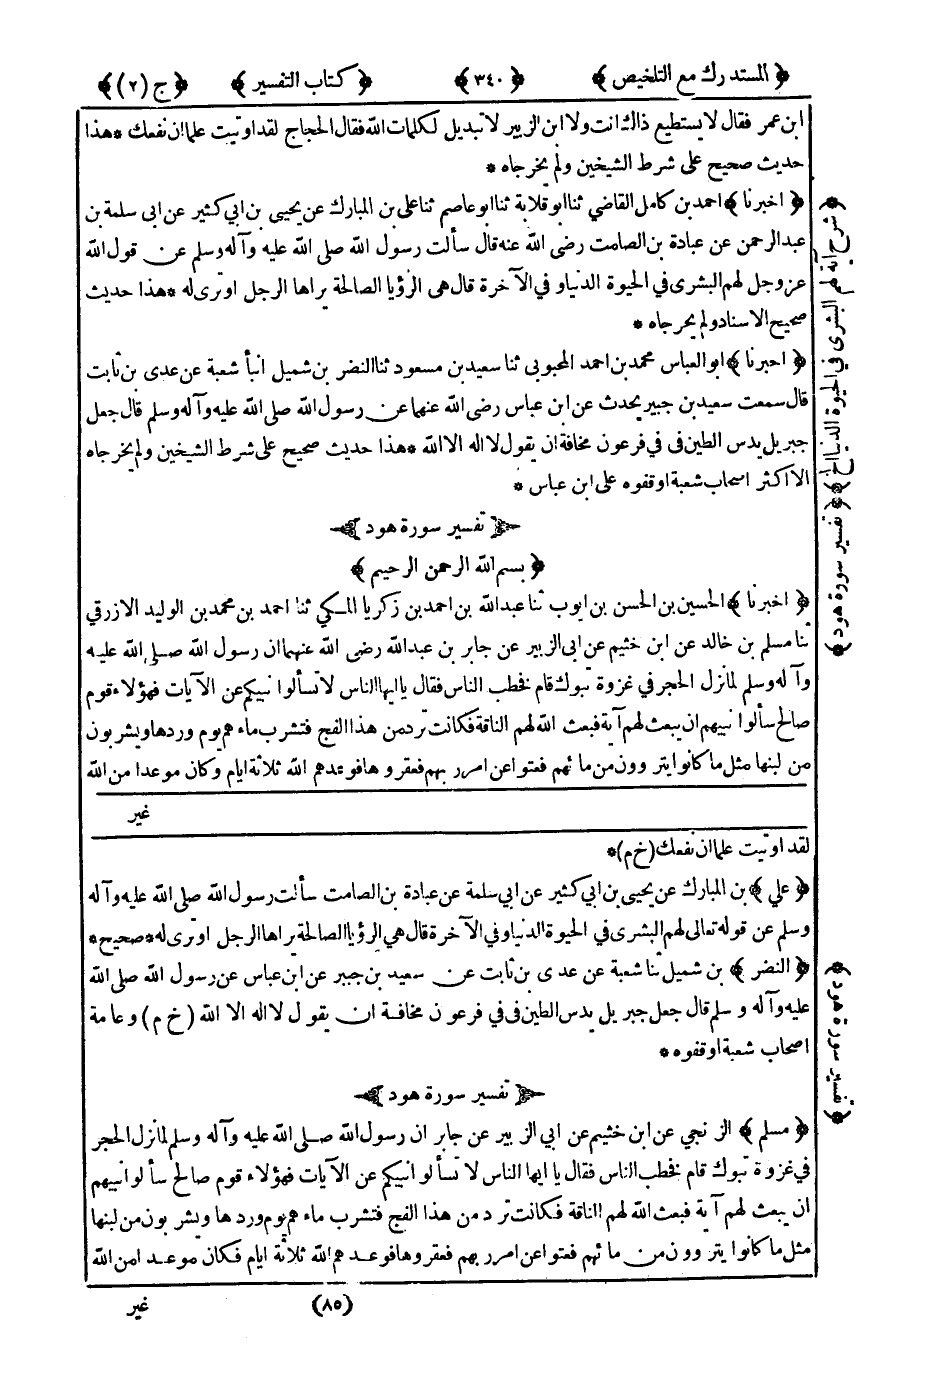 ﴿ المستدرك مع التلخيص ﴾ ﴿ ٣٤٠ ﴾ ﴿ كتاب التفسير ﴾ ﴿ ج (٢) ﴾
ابن عمر فقال لا يستطيع ذاك انت ولا ابن الزبير لا تبديل لكلمات الله فقال الحجاج لقد اوتيت علما ان نفعك * هذا
حديث صحيح على شرط الشيخين ولم يخرجاه *
﴿ اخبرنا ﴾ احمد بن كامل القاضي ثنا ابو قلابة ثنا ابو عاصم ثنا علي بن المبارك عن يحيى بن ابي كثير عن ابى سلمة بن
عبد الرحمن عن عبادة بن الصامت رضى الله عنه قال سألت رسول الله صلى الله عليه وآله وسلم عن قول الله
عز وجل لهم البشرى في الحيوة الدنيا و في الآخرة قال هى الرؤيا الصالحة يراها الرجل او ترى له * هذا حديث
صحيح الاسناد ولم يخرجاه *
﴿ اخبرنا ﴾ ابو العباس محمد بن احمد المحبوبى ثنا سعيد بن مسعود ثنا النضر بن شميل انبأ شعبة عن عدى بن ثابت
قال سمعت سعيد بن جبير يحدث عن ابن عباس رضى الله عنهما عن رسول الله صلى الله عليه وآله وسلم قال جعل
جبريل يدس الطين فى في فرعون مخافة ان يقول لا اله الا الله * هذا حديث صحيح على شرط الشيخين ولم يخرجاه
الا اكثر اصحاب شعبة اوقفوه على ابن عباس *
تفسير سورة هود
﴿ بسم الله الرحمن الرحيم ﴾
﴿ اخبرنا ﴾ الحسين بن الحسن بن ايوب ثنا عبد الله بن احمد بن زكريا المكي ثنا احمد بن محمد بن الوليد الازرقي
ثنا مسلم بن خالد عن ابن خثيم عن ابى الزبير عن جابر بن عبد الله رضى الله عنهما ان رسول الله صلى الله عليه
وآله وسلم لما نزل الحجر في غزوة تبوك قام فخطب الناس فقال يا ايها الناس لا تسألوا نبيكم عن الآيات فهؤلاء قوم
صالح سألوا نبيهم ان يبعث لهم آية فبعث الله لهم الناقة فكانت ترد من هذا الفج فتشرب ماءهم يوم وردها ويشربون
من لبنها مثل ما كانوا يتروون من مائهم فعتوا عن امر ربهم فعقروها فوعدهم الله ثلاثة ايام وكان موعدا من الله
غير
لقد اوتيت علما ان نفعك (خ م) *
﴿ علي ﴾ بن المبارك عن يحيى بن ابي كثير عن ابي سلمة عن عبادة بن الصامت سألت رسول الله صلى الله عليه وآله
وسلم عن قوله تعالى لهم البشرى في الحيوة الدنيا و في الآخرة قال هي الرؤيا الصالحة يراها الرجل او ترى له * صحيح *
﴿ النضر ﴾ بن شميل ثنا شعبة عن عدى بن ثابت عن سعيد بن جبير عن ابن عباس عن رسول الله صلى الله
عليه وآله وسلم قال جعل جبريل يدس الطين فى في فرعون مخافة ان يقول لا اله الا الله (خ م) وعامة
اصحاب شعبة اوقفوه *
تفسير سورة هود
﴿ مسلم ﴾ الزنجي عن ابن خثيم عن ابي الزبير عن جابر ان رسول الله صلى الله عليه وآله وسلم لما نزل الحجر
في غزوة تبوك قام فخطب الناس فقال يا ايها الناس لا تسألوا نبيكم عن الآيات فهؤلاء قوم صالح سألوا نبيهم
ان يبعث لهم آية فبعث الله لهم الناقة فكانت ترد من هذا الفج فتشرب ماءهم يوم وردها ويشربون من لبنها
مثل ما كانوا يتروون من مائهم فعتوا عن امر ربهم فعقروها فوعدهم الله ثلاثة ايام فكان موعدا من الله
(٨٥) غير
﴿ شرح آية لهم البشرى في الحيوة الدنيا الخ ﴾
﴿ تفسير سورة هود ﴾
﴿ تفسير سورة هود ﴾